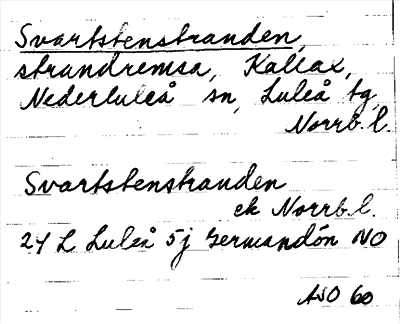 Svartstenstranden,
strandremsa, Kallax,
Nederluleå sn, Luleå tg,
Norrb. l.
Svartstenstranden
ek Norrb. l.
24 L Luleå 5j Germandön NO
60